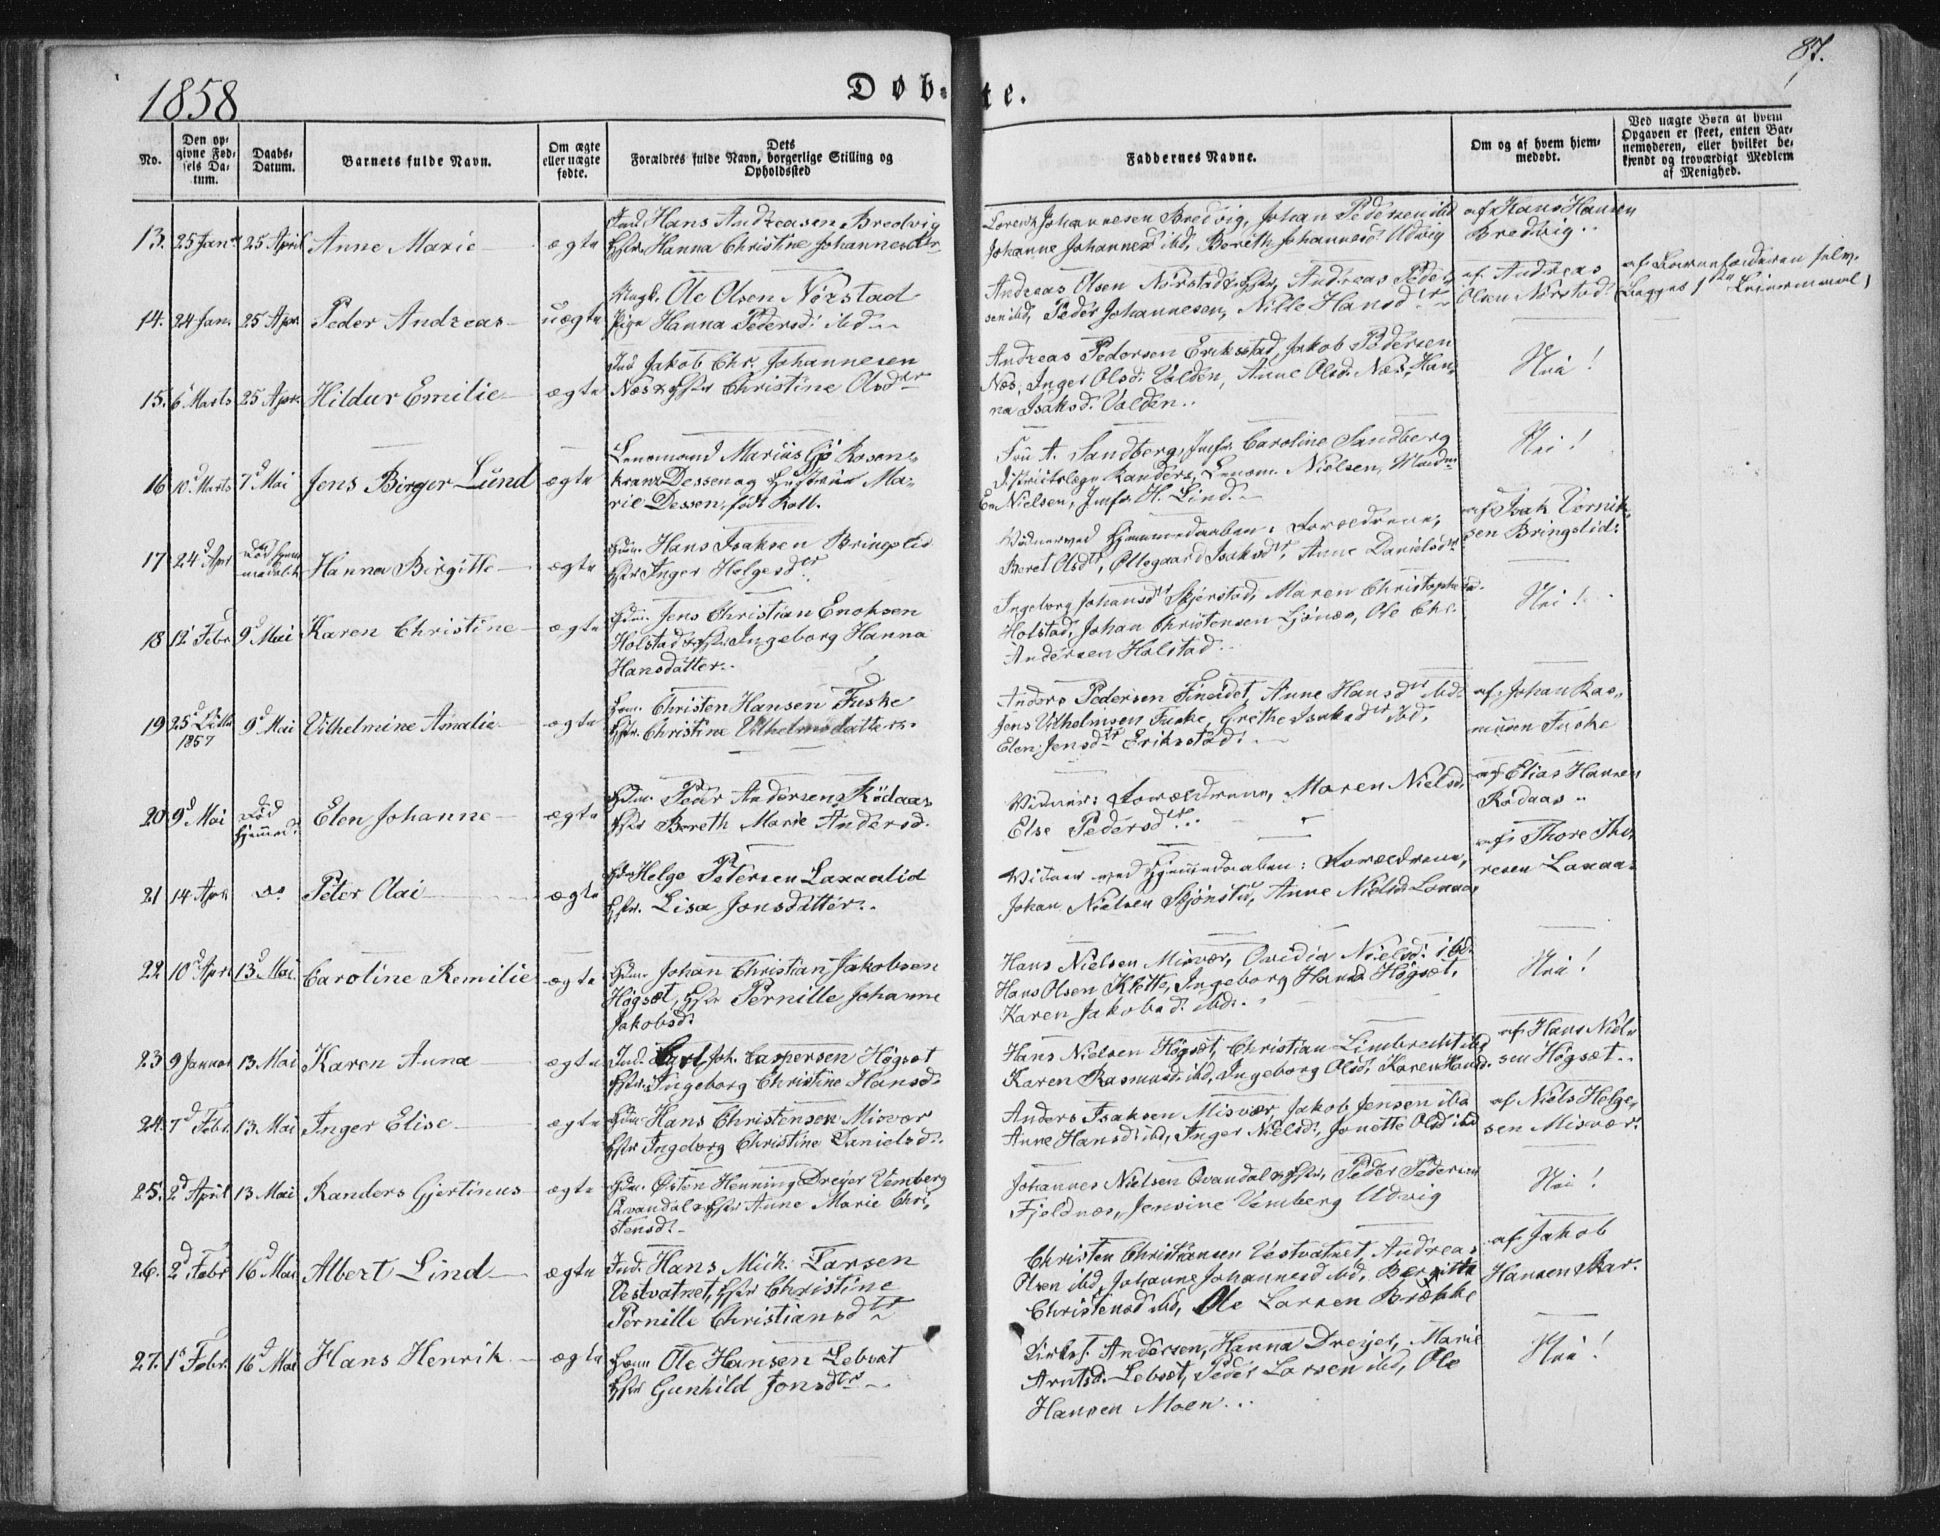 1858
Døb-te.
87.
No.
Den op-
givne Fød-
sels Da-
tum.
Daabs-
Datum.
Barnets fulde Navn.
Om ægte
eller uægte
fødte.
Dets
Forældres fulde Navn, borgerlige Stilling og
Opholdssted
Faddernes Navne.
Om og af hvem hjem-
medøbt.
Ved uægte Børn at hvem
Opgaven er skeet, enten Bar-
nemoderen, eller hvilket be-
kjendt og troværdigt Medlem
af Menighed.
13. 25 Jan. 25 April Anne Marie ægte
Ind. Hans Andreasen Bredvig
Hstr. Hanna Christine Johannesdtr
Lorents Johannesen Bredvig, Johan Pedersen ibd
Johanne Johannesd. ibd, Bereth Johannesd. Udvig
af Hans Hansen
Bredvig..
14. 24 Jan. 25 Apr. Peder Andreas uægte
Ungk. Ole Olsen Nørstad
Pige Hanna Pedersd. ibd
Andreas Olsen Nørstad & Hstr, Andreas Peder-
sen ibd, Peder Johannesen, Nille Hansdtr
af Andreas
Olsen Nørstad.
af Barnefaderen selv.
Begges 1ste Leiermaal
15. 6 Marts 25 Apr. Hildur Emilie ægte
Ind Jakob Chr. Johannesen
Næs & Hstr Christine Olsdtr
Andreas Pedersen Eriksstad, Jakob Pedersen
Næs, Inger Olsd. Valden, Anne Olsd. Næs, Han-
na Isaksd. Valden..
Nei!
16 10 Marts 7d Mai Jens Birger Lund ægte
Lensmand Marius Gjö Rosen-
kranz Dessen og Hustrue Ma-
rie Dessen, født Kolb.
Fru A. Sandberg, Jmfr Caroline Sandberg
Districtslæge Randers, Lensm. Nielsen, Madm
Em Nielsen, Jmfr. H. Lind.
Nei!
17 24d Apr død Hjem-
medøbt Hanna Birgitte ægte
Hdm. Hans Isaksen Bringslid
Hstr Inger Helgesdtr
Vidner ved Hjemmedaaben: Forældrene,
Beret Olsdtr, Ottegaard Isaksdtr, Anne Danielsdtr
af Isak Tørnik-
sen Bringslid.
18 12 Febr 9d Mai Karen Christine ægte
Hdm. Jens Christian Enoksen
Holstad & Hstr Ingeborg Hanna
Hansdatter..
Ingeborg Johansdtr Skjerstad, Maren Christophersd.
Holstad, Johan Christensen Ljønæs, Ole Chr.
Andersen Holstad..
Nei!
19 25d
1857 9d Mai Vilhelmine Amalie ægte
Hdm. Christen Hansen Fuske
Hstr. Christine Vilhelmsdatter.
Anders Pedersen Fineidet, Anne Hansdtr ibd.
Jens Vilhelmsen Fuske, Grethe Isaksdtr ibd,
Elen Jensdtr Eriksstad.
af Johan Ras-
mussen Fuske
20 9d Mai død
Hjemmed. Elen Johanne ægte
Hdm. Peder Andersen Rødaas
Hstr Bereth Marie Andersd.
Vidner: Forældrene, Maren Nielsd
Else Pedersdtr..
af Elias Hansen
Rødaas..
21 14 Apr. do Peter Olai ægte
Hdm Helge Petersen Laxaalid
Hstr. Lisa Jonsdatter..
Vidner ved Hjemmedaaben: Forældrene,
Johan Nielsen Skjønstu, Anne Nielsd. Laxaa
af Thore Tho-
resen Laxaa-
22 10d Apr. 13d Mai. Caroline Remilie ægte
Hdm. Johan Christian Jakobsen
Høgsæt, Hstr Pernille Johanne
Jakobsd.
Hans Nielsen Misvær, Ovidia Nielsd. ibd.
Hans Olsen Klette, Ingeborg Hansd Høgsæt,
Karen Jakobsd. ibd..
Nei!
23 9 Januar 13 Mai Karen Anna ægte
Ind. Joh. Caspersen Høgsæt
Hstr Ingeborg Christine Hansd.
Hans Nielsen Høgsæt, Christian Limbrecht ibd
Karen Rasmusd. ibd, Ingeborg Olsd, Karen Hansd.
af Hans Niel-
sen Høgsæt..
24. 7d Febr. 13 Mai Inger Elise ægte
Hdm. Hans Christensen Misvær
Hstr Ingeborg Christine Danielsd.
Anders Isaksen Misvær, Jakob Jensen ibd
Anne Hansd. ibd, Inger Nielsd. Jonette Olsd ibd
af Niels Helge-
sen Misvær.
25. 2d April 13 Mai Randers Gjertinus ægte
Hdm. Østen Henning Dreyer Vemberg
Qvandal & Hstr Anne Marie Chri-
stensd.
Johannes Nielsen Qvandal & Hstr, Peder Pedersen
Fjeldnæs, Jensine Vemberg Udvig
Nei!
26. 2d Febr 16d Mai Albert Lind ægte
Ind. Hans Mich. Larsen
Vestvatnet, Hstr Christine
Pernille Christiansdtr
Christen Christiansen Vestvatnet, Andreas
Olsen ibd, Johanne Johannesd ibd, Bergitte
Christensd ibd, Ole Larsen Brække
af Jakob
Hansen Skar.
27. 1s Febr. 16d Mai Hans Henrik ægte
Hdm Ole Hansen Lebsæt
Hstr Gunhild Jonsdtr
Kirkes. Andersen, Hanna Dreyer, Marie
Arntsd. Lebsæt, Peder Larsen ibd, Ole
Hansen Moen...
Nei!